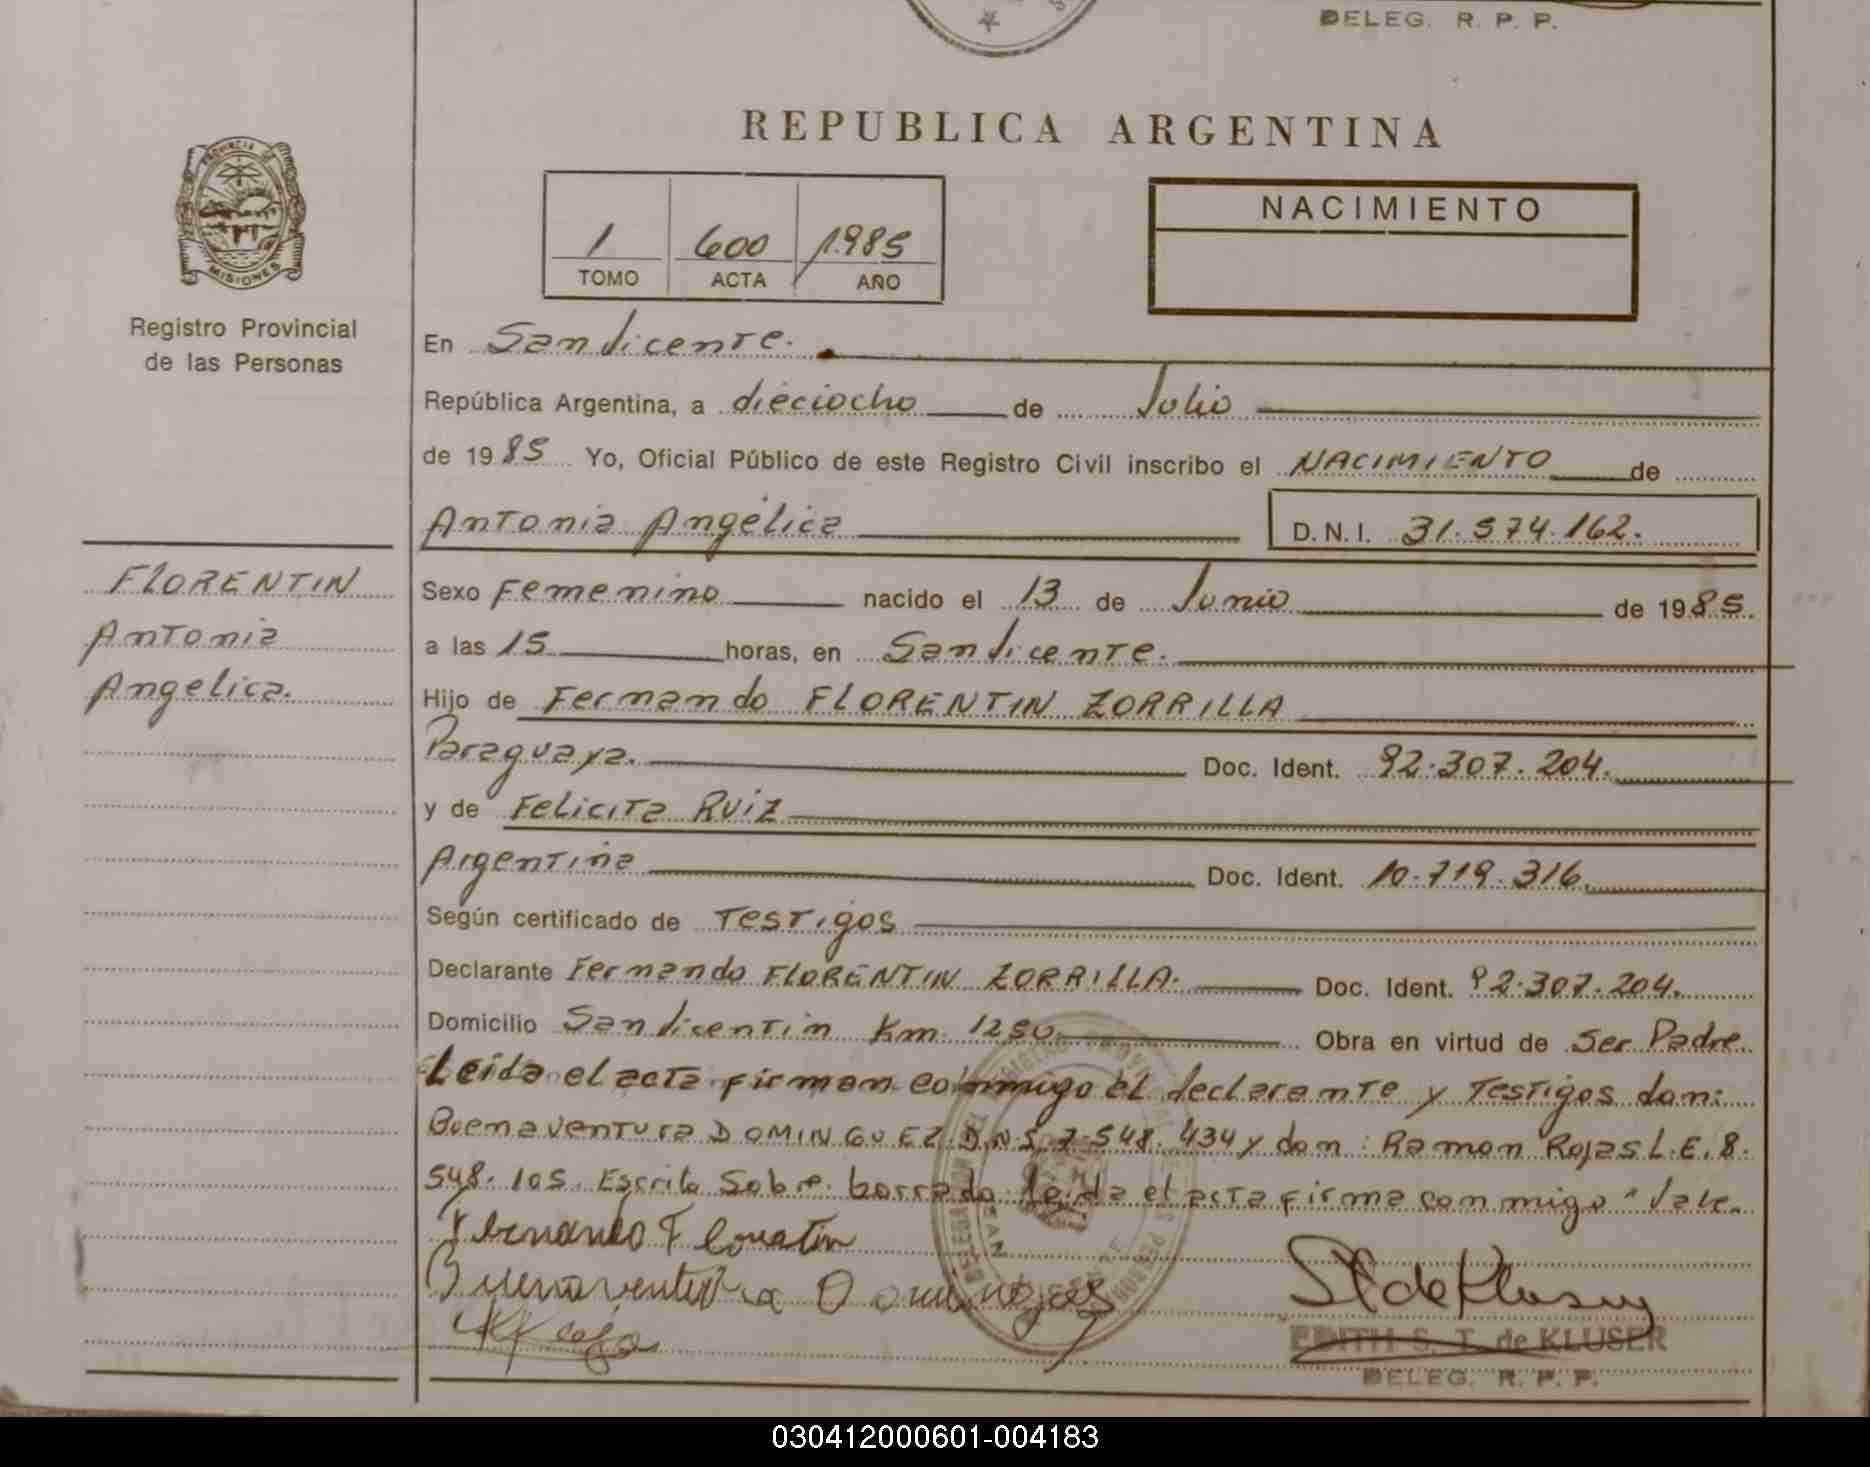 DELEG. R. P. P.
REPUBLICA ARGENTINA
PROVINCIA DE
MISIONES
Registro Provincial
de las Personas
1 600 1985
TOMO ACTA AÑO
NACIMIENTO
En San Vicente.
República Argentina, a dieciocho de Julio
de 1985 Yo, Oficial Público de este Registro Civil inscribo el NACIMIENTO de
Antonia Angélica D.N.I. 31.574.162.
FLORENTIN
Antonia
Angelica.
Sexo Femenino nacido el 13 de Junio de 1985.
a las 15 horas, en San Vicente.
Hijo de Fernando FLORENTIN ZORRILLA
Paraguaya. Doc. Ident. 92.307.204.
y de Felicita Ruiz
Argentina Doc. Ident. 10.719.316.
Según certificado de Testigos
Declarante Fernando FLORENTIN ZORRILLA. Doc. Ident. 92.307.204.
Domicilio San Vicentin Km. 1280 Obra en virtud de Ser Padre.
Leida el acta firman conmigo el declarante y Testigos don:
Buenaventura DOMINGUEZ D.N.I. 7.548.434 y don: Ramon Rojas L.E. 8.
548.105. Escrito Sobre borrado leida el acta firma conmigo" Vale.
Fernando Florentin
Buenaventura
EDITH S. T. de KLUSER
DELEG. R. P. P.
030412000601-004183